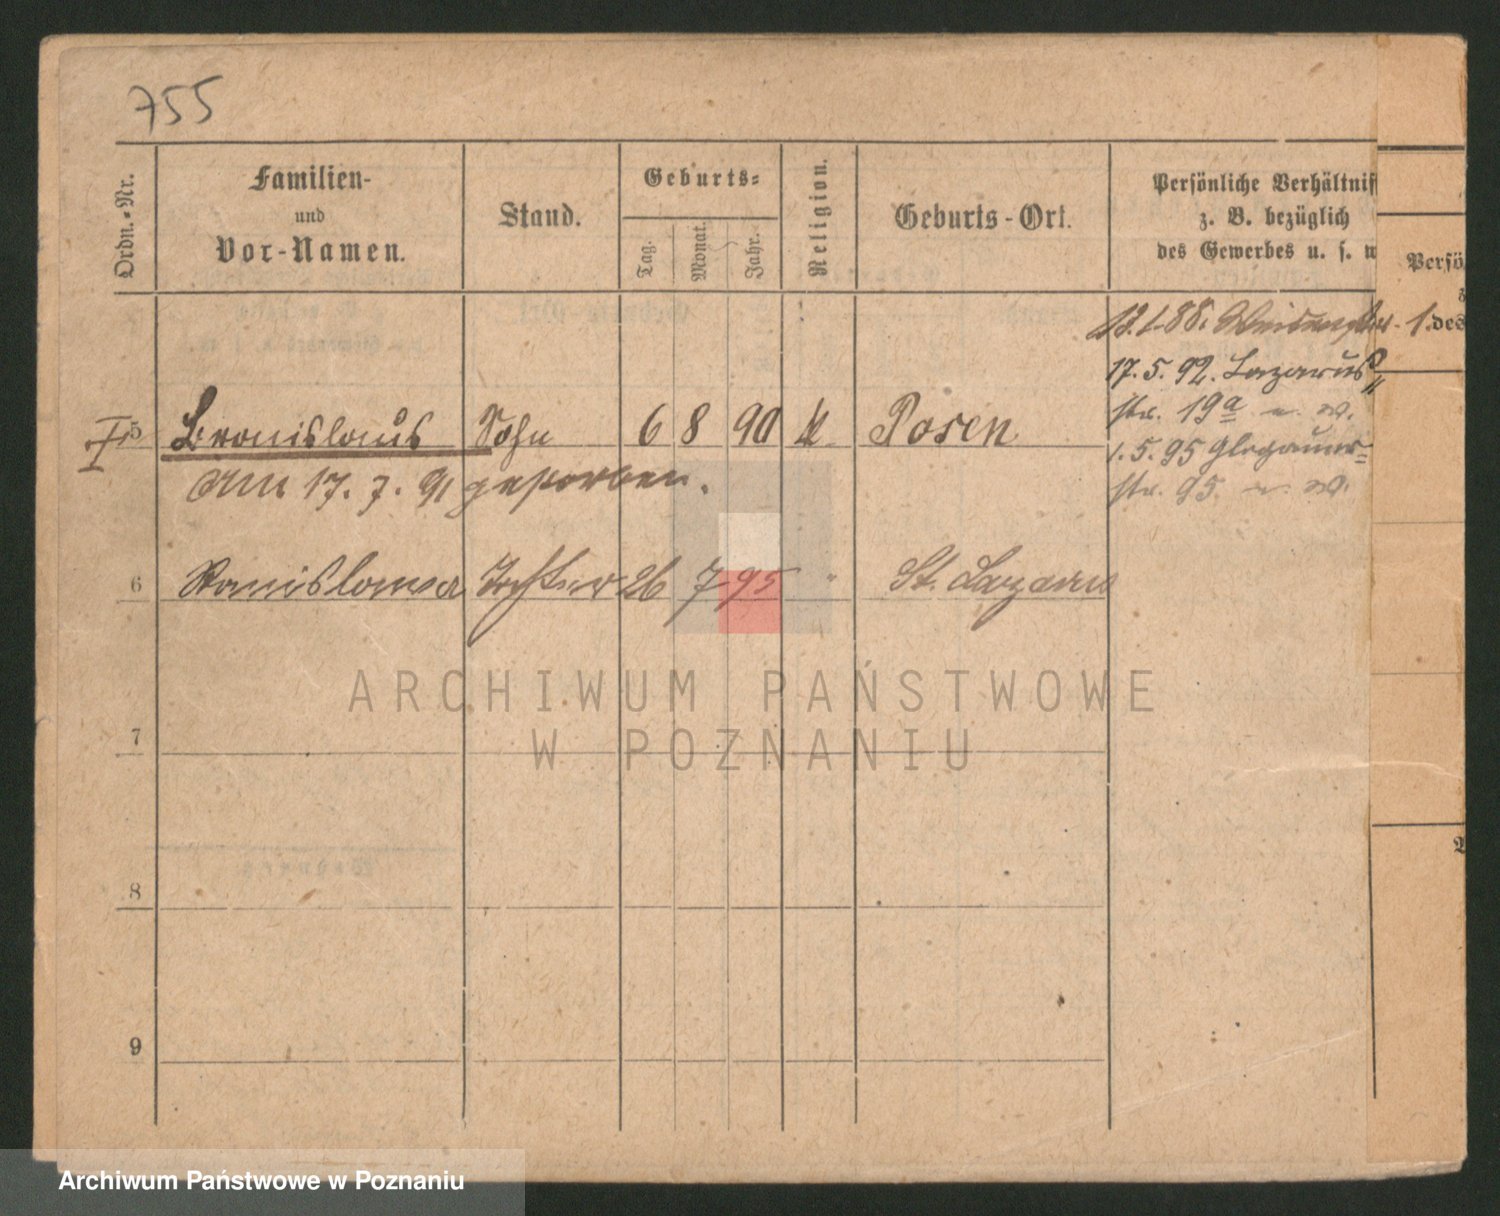 755
Ordn.-Nr.
Familien-
und
Vor-Namen.
Stand.
Geburts-
Tag.
Monat.
Jahr.
Religion.
Geburts-Ort.
Persönliche Verhältniss
z. B. bezüglich
des Gewerbes u. s. w
Persö
z
1. des
13. 1. 88.
17. 5. 92. Lazarus
str. 19a n. W.
5 Bronislaus Sohn 6 8 90 k Posen
1. 5. 95 Glogauer-
Am 17. 7. 91 gestorben.
str. 95. n. W.
6 Stanislawa Tochter 26 7 95 " St. Lazarus
ARCHIWUM PAŃSTWOWE
W POZNANIU
7
8
9
Archiwum Państwowe w Poznaniu